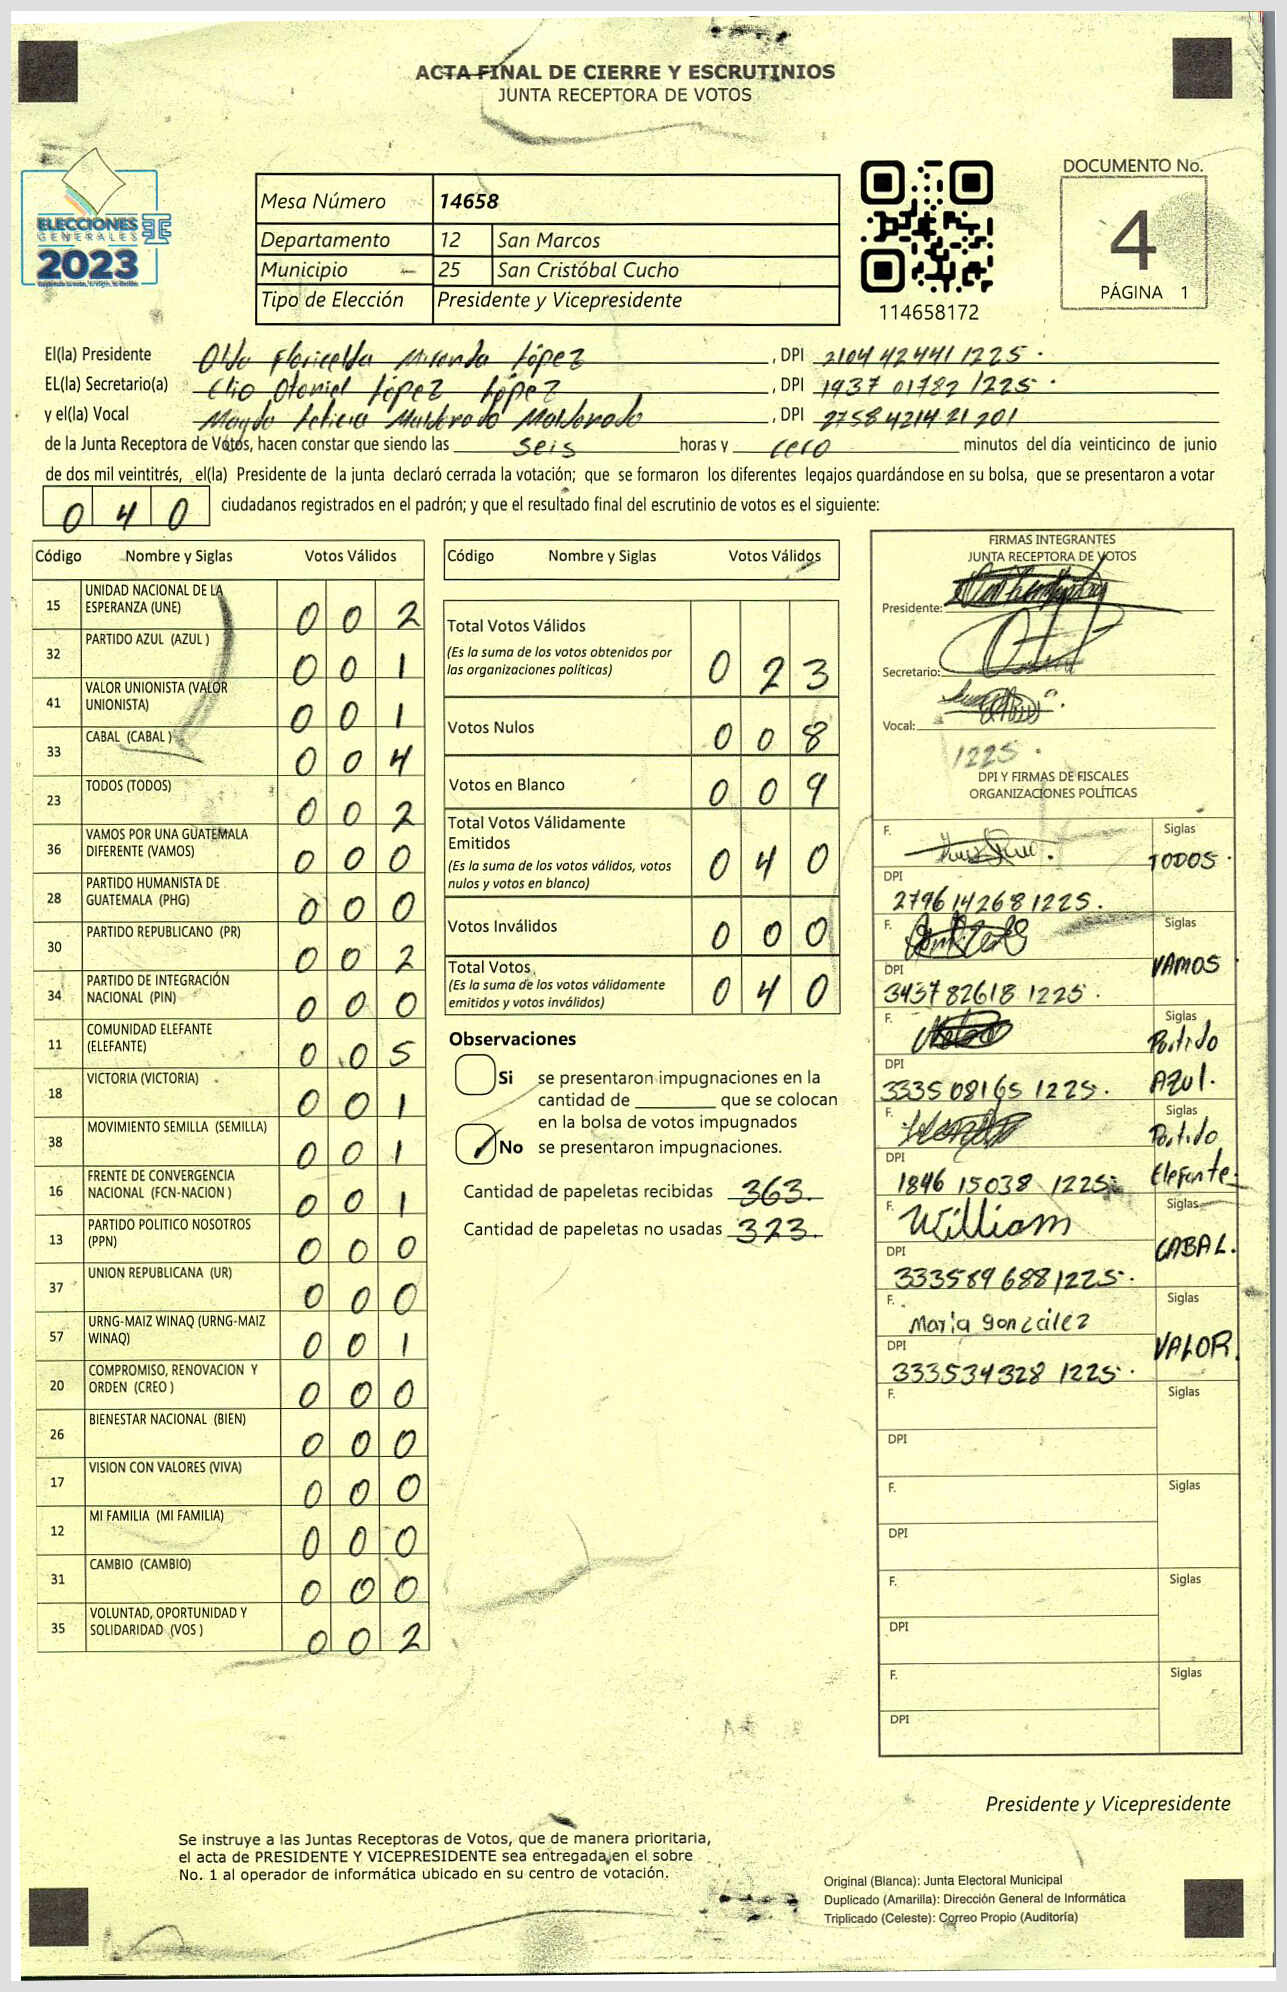 ACTA FINAL DE CIERRE Y ESCRUTINIOS
JUNTA RECEPTORA DE VOTOS
ELECCIONES
GENERALES
2023
Mesa Número 14658
Departamento 12 San Marcos
Municipio 25 San Cristóbal Cucho
Tipo de Elección Presidente y Vicepresidente
114658172
DOCUMENTO No.
4
PÁGINA 1
El(la) Presidente Floricelda Miranda López , DPI 2104 42441 1225.
EL(la) Secretario(a) Otoniel López López , DPI 1937 01782 1225.
y el(la) Vocal Magda Felicia Maldonado Maldonado , DPI 2758 42142 1201
de la Junta Receptora de Votos, hacen constar que siendo las seis horas y cero minutos del día veinticinco de junio
de dos mil veintitrés, el(la) Presidente de la junta declaró cerrada la votación; que se formaron los diferentes legajos guardándose en su bolsa, que se presentaron a votar
0 4 0 ciudadanos registrados en el padrón; y que el resultado final del escrutinio de votos es el siguiente:
Código Nombre y Siglas Votos Válidos
15 UNIDAD NACIONAL DE LA ESPERANZA (UNE) 0 0 2
32 PARTIDO AZUL (AZUL ) 0 0 1
41 VALOR UNIONISTA (VALOR UNIONISTA) 0 0 1
33 CABAL (CABAL ) 0 0 4
23 TODOS (TODOS) 0 0 2
36 VAMOS POR UNA GUATEMALA DIFERENTE (VAMOS) 0 0 0
28 PARTIDO HUMANISTA DE GUATEMALA (PHG) 0 0 0
30 PARTIDO REPUBLICANO (PR) 0 0 2
34 PARTIDO DE INTEGRACIÓN NACIONAL (PIN) 0 0 0
11 COMUNIDAD ELEFANTE (ELEFANTE) 0 0 5
18 VICTORIA (VICTORIA) 0 0 1
38 MOVIMIENTO SEMILLA (SEMILLA) 0 0 1
16 FRENTE DE CONVERGENCIA NACIONAL (FCN-NACION ) 0 0 1
13 PARTIDO POLITICO NOSOTROS (PPN) 0 0 0
37 UNION REPUBLICANA (UR) 0 0 0
57 URNG-MAIZ WINAQ (URNG-MAIZ WINAQ) 0 0 1
20 COMPROMISO, RENOVACION Y ORDEN (CREO ) 0 0 0
26 BIENESTAR NACIONAL (BIEN) 0 0 0
17 VISION CON VALORES (VIVA) 0 0 0
12 MI FAMILIA (MI FAMILIA) 0 0 0
31 CAMBIO (CAMBIO) 0 0 0
35 VOLUNTAD, OPORTUNIDAD Y SOLIDARIDAD (VOS ) 0 0 2
Código Nombre y Siglas Votos Válidos
Total Votos Válidos
(Es la suma de los votos obtenidos por
las organizaciones políticas) 0 2 3
Votos Nulos 0 0 8
Votos en Blanco 0 0 9
Total Votos Válidamente
Emitidos
(Es la suma de los votos válidos, votos
nulos y votos en blanco) 0 4 0
Votos Inválidos 0 0 0
Total Votos
(Es la suma de los votos válidamente
emitidos y votos inválidos) 0 4 0
Observaciones
Si se presentaron impugnaciones en la
cantidad de ________ que se colocan
en la bolsa de votos impugnados
No se presentaron impugnaciones.
Cantidad de papeletas recibidas 363.
Cantidad de papeletas no usadas 323.
FIRMAS INTEGRANTES
JUNTA RECEPTORA DE VOTOS
Presidente:
Secretario:
Vocal:
1225.
DPI Y FIRMAS DE FISCALES
ORGANIZACIONES POLÍTICAS
F. Siglas
TODOS.
DPI
2796 14268 1225.
F. Siglas
VAMOS.
DPI
3437 82618 1225.
F. Siglas
Partido
AZUL.
DPI
3335 08165 1225.
F. Siglas
Partido
Elefante
DPI
1846 15038 1225
F. William Siglas
CABAL.
DPI
333589688 1225.
F. María González Siglas
VALOR.
DPI
333534328 1225.
F. Siglas
DPI
F. Siglas
DPI
F. Siglas
DPI
F. Siglas
DPI
Presidente y Vicepresidente
Se instruye a las Juntas Receptoras de Votos, que de manera prioritaria,
el acta de PRESIDENTE Y VICEPRESIDENTE sea entregada en el sobre
No. 1 al operador de informática ubicado en su centro de votación.
Original (Blanca): Junta Electoral Municipal
Duplicado (Amarilla): Dirección General de Informática
Triplicado (Celeste): Correo Propio (Auditoría)